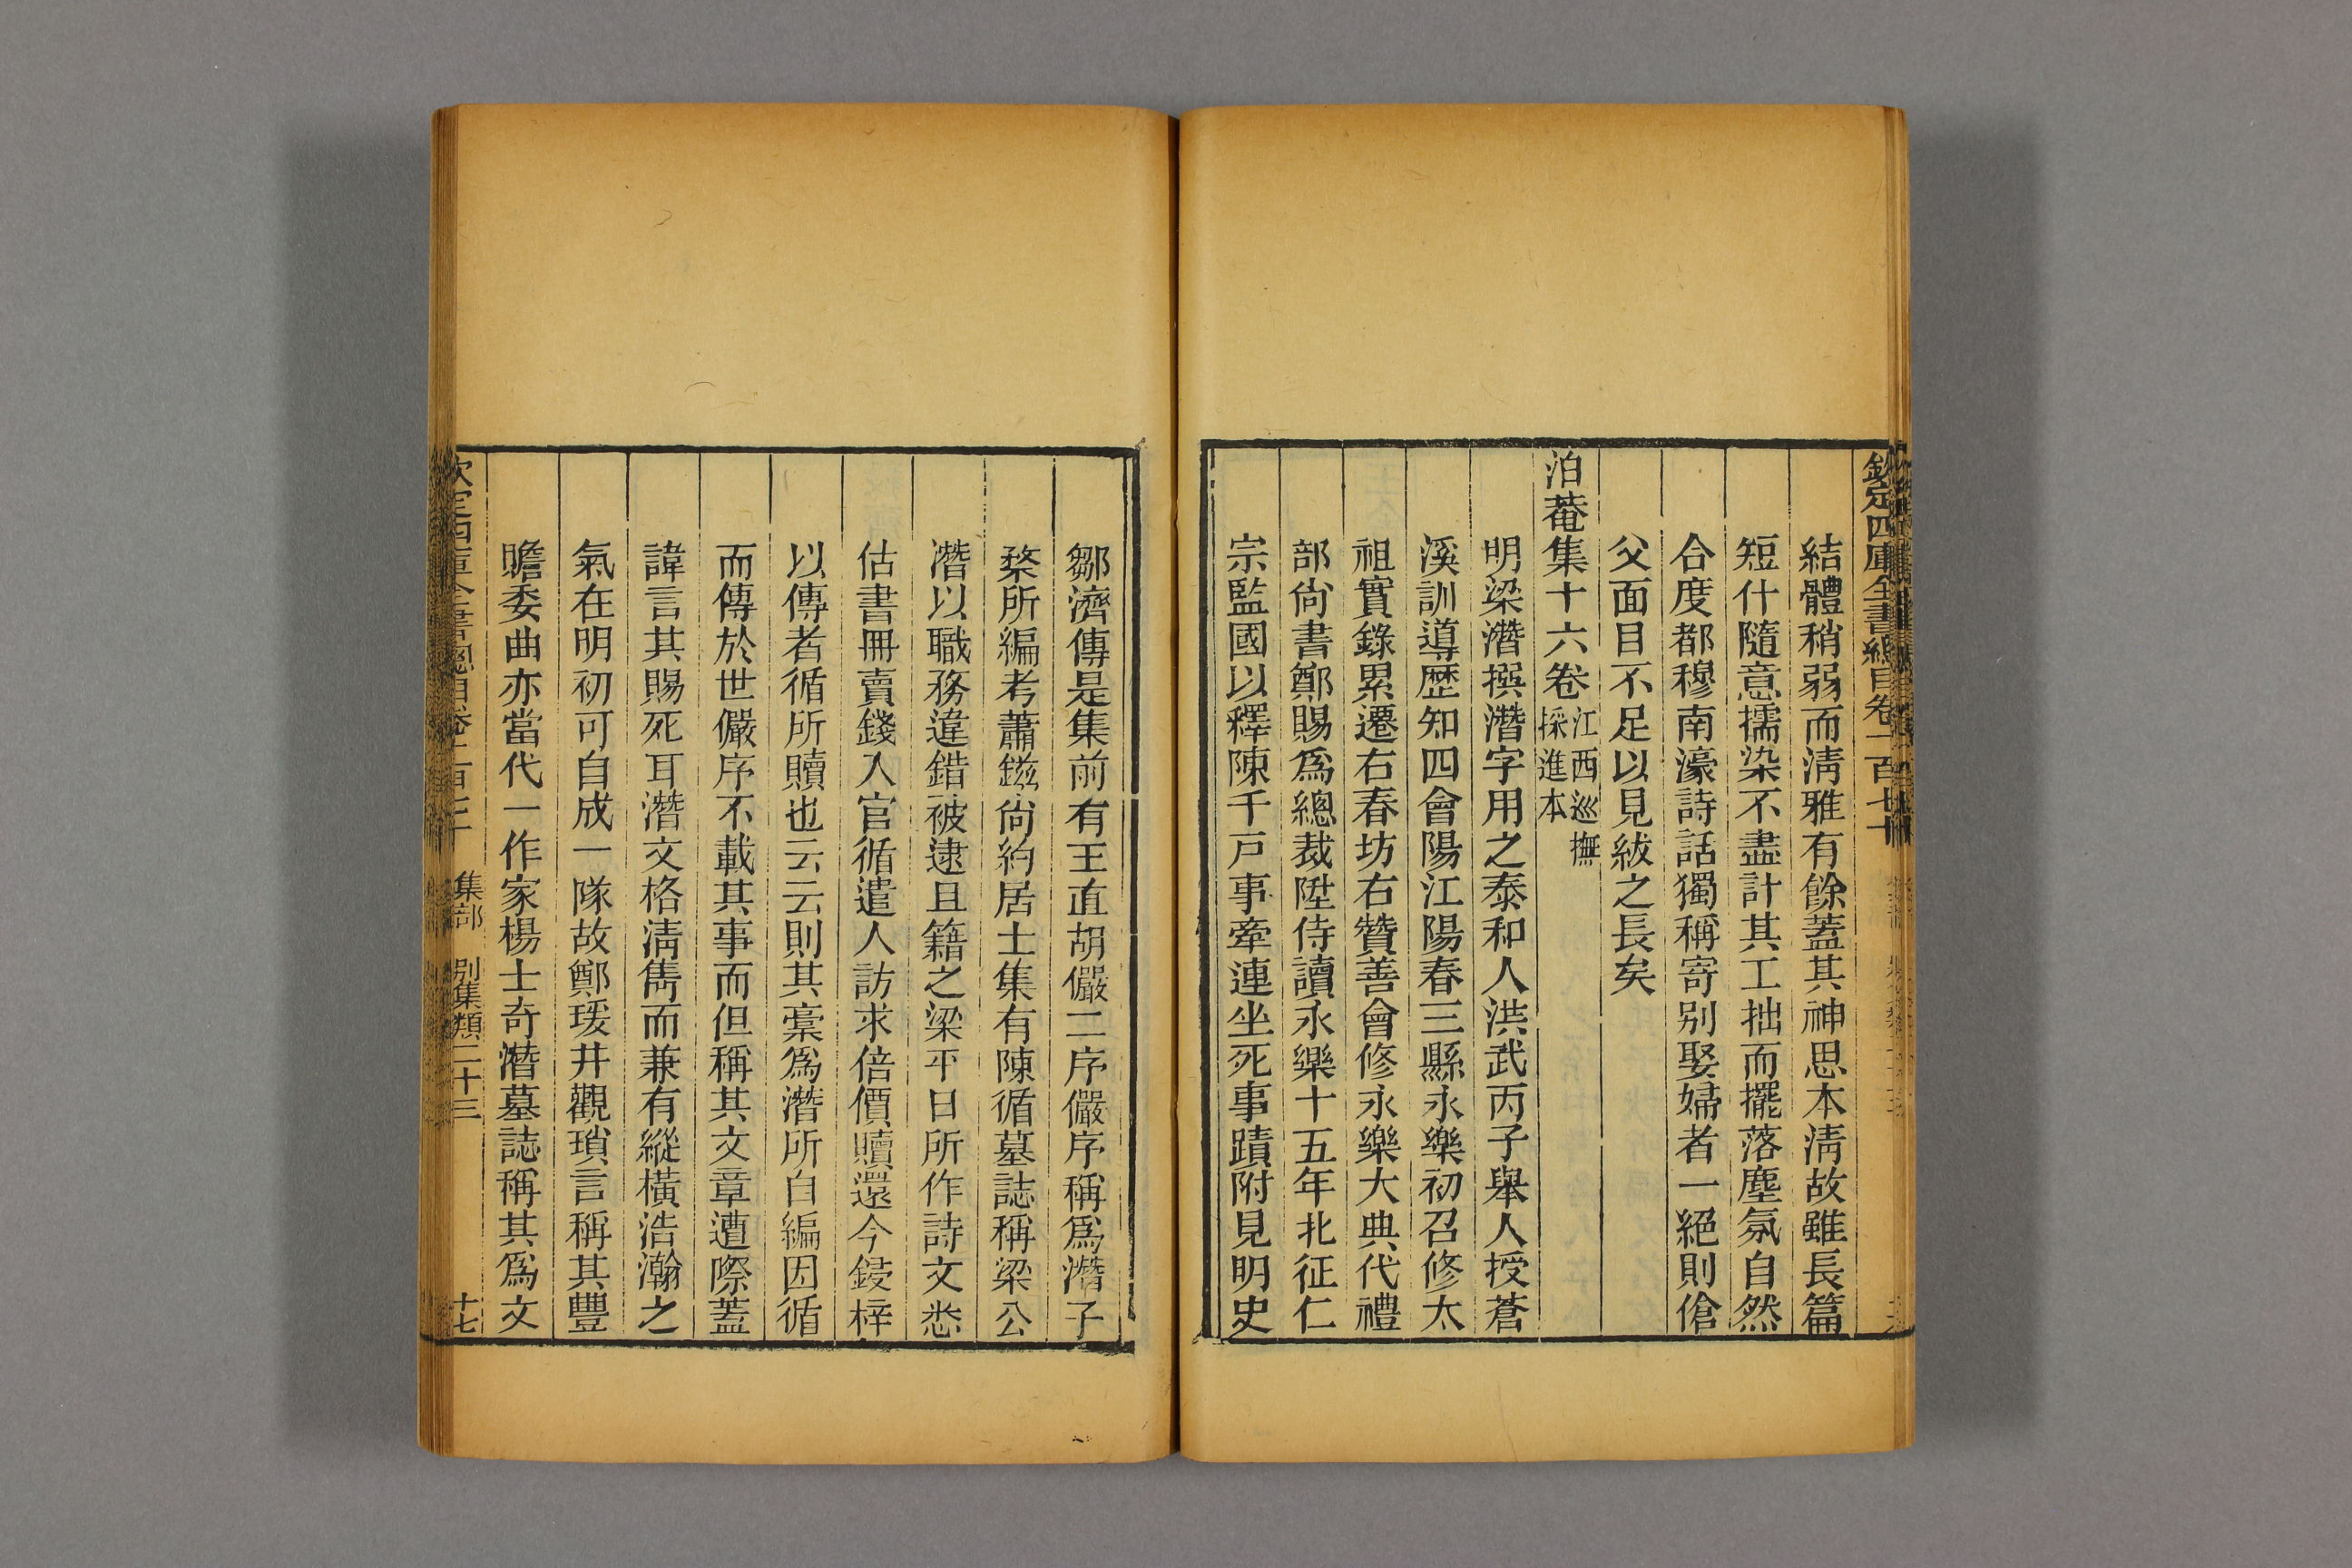 欽定四庫全書總目卷一百七十
結體稍弱而淸雅有餘蓋其神思本淸故雖長篇
短什隨意擩染不盡計其工拙而擺落塵氛自然
合度都穆南濠詩話獨稱寄别娶婦者一絕則傖
父面目不足以見紱之長矣
泊菴集十六卷江西巡撫採進本
明梁潛撰潛字用之泰和人洪武丙子舉人授蒼
溪訓導歴知四會陽江陽春三縣永樂初召修太
祖實錄累遷右春坊右贊善會修永樂大典代禮
部尙書鄭賜爲總裁陞侍讀永樂十五年北征仁
宗監國以釋陳千戸事牽連坐死事蹟附見明史
鄒濟傳是集前有王直胡儼二序儼序稱爲潛子
楘所編考蕭鎡尙約居士集有陳循墓誌稱梁公
潛以職務違錯被逮且籍之梁平日所作詩文悉
估書冊賣錢入官循遣人訪求倍價贖還今鋟梓
以傳者循所贖也云云則其稾爲潛所自編因循
而傳於世儼序不載其事而但稱其文章遭際蓋
諱言其賜死耳潛文格淸雋而兼有縱橫浩瀚之
氣在明初可自成一隊故鄭瑗井觀瑣言稱其豐
贍委曲亦當代一作家楊士奇潛墓誌稱其爲文
集部　别集類二十三　十七